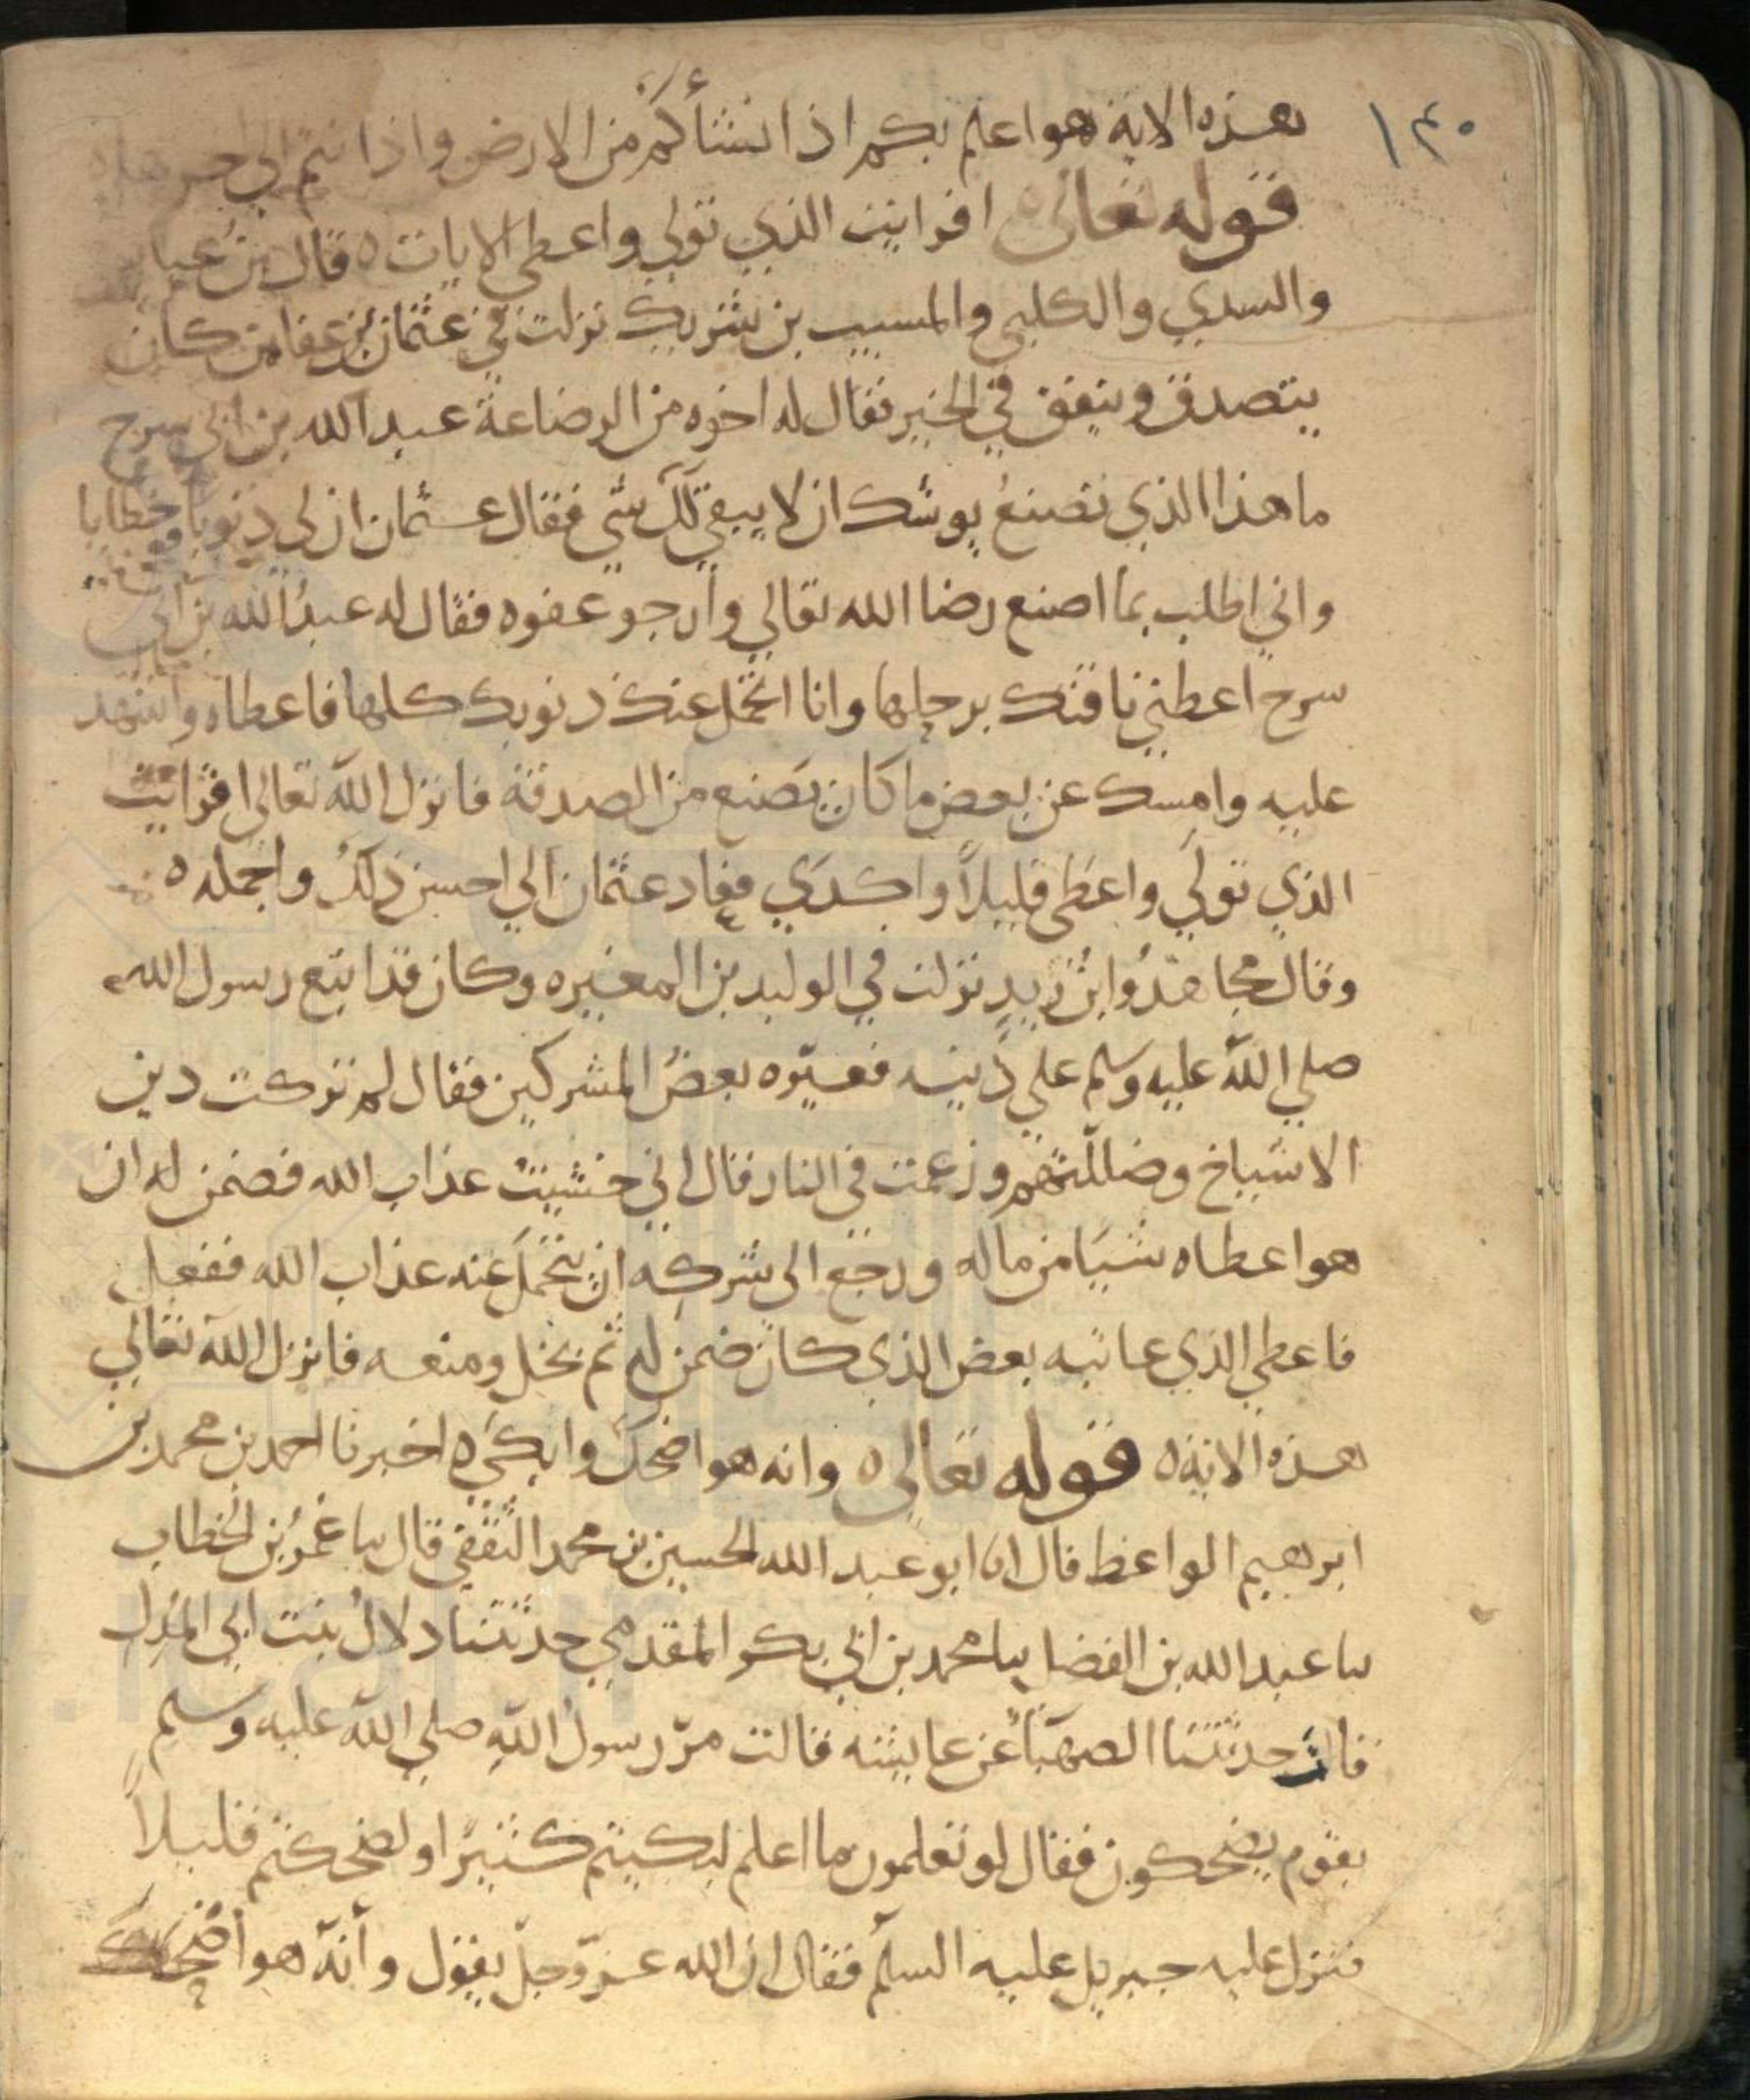 ١٣٠
هذه الاية هو اعلم بكم اذ انشأكم من الارض واذ انتم الى اخرها ه
قوله تعالى ه افرايت الذي تولى واعطى الايات ه قال بن عباس
والسدي والكلبي والمسيب بن شريك نزلت في عثمان بن عفان كان
يتصدق وينفق في الخير فقال له اخوه من الرضاعة عبد الله بن ابي سرح
ما هذا الذي تصنع يوشك ان لا يبقي لك شي فقال عثمان ان لي ذنوبا وخطايا
واني اطلب بما اصنع رضا الله تعالي وأرجو عفوه فقال له عبد الله بن ابي
سرح اعطني ناقتك برحلها وانا اتحمل عنك ذنوبك كلها فاعطاه واشهد
عليه وامسك عن بعض ما كان يصنع من الصدقة فانزل الله تعالى افرايت
الذي تولى واعطى قليلاً واكدى فعاد عثمان الي احسن ذلك واجمله ه
وقال مجاهدُ وابن زيد نزلت في الوليد بن المغيره وكان قد اتبع رسول الله
صلي الله عليه وسلم علي دينه فعيّره بعضُ المشركين فقال لم تركت دين
الاشياخ وضللتهم وزعمت في النار قال اني خشيتُ عذاب الله فضمن له ان
هو اعطاه شيئا من ماله ورجع الى شركه ان يتحمل عنه عذاب الله ففعل
فاعطي الذي عاتبه بعض الذي كان ضمن له ثم بخل ومنعه فانزل الله تعالي
هذه الاية ه قوله تعالى ه وانه هو اضحك وابكى ه اخبرنا احمد بن محمد بن
ابرهيم الواعظ قال انا ابو عبد الله الحسين بن محمد الثقفي قال سا عمرُ بن الخطاب
سا عبد الله بن الفضل سا محمد بن ابي بكر المقدمي حدثتنا دلالُ بنت ابي المدل
قالت حدثتنا الصهباُ عن عايشه قالت مرّ رسول الله صلي الله عليه وسلم
بقوم يضحكون فقال لو تعلمون ما اعلم لبكيتم كثيرًا ولضحكتم قليلاً
فنزل عليه جبريل عليه السلم فقال ان الله عزّ وجلّ يقول وأنّه هو أضحك